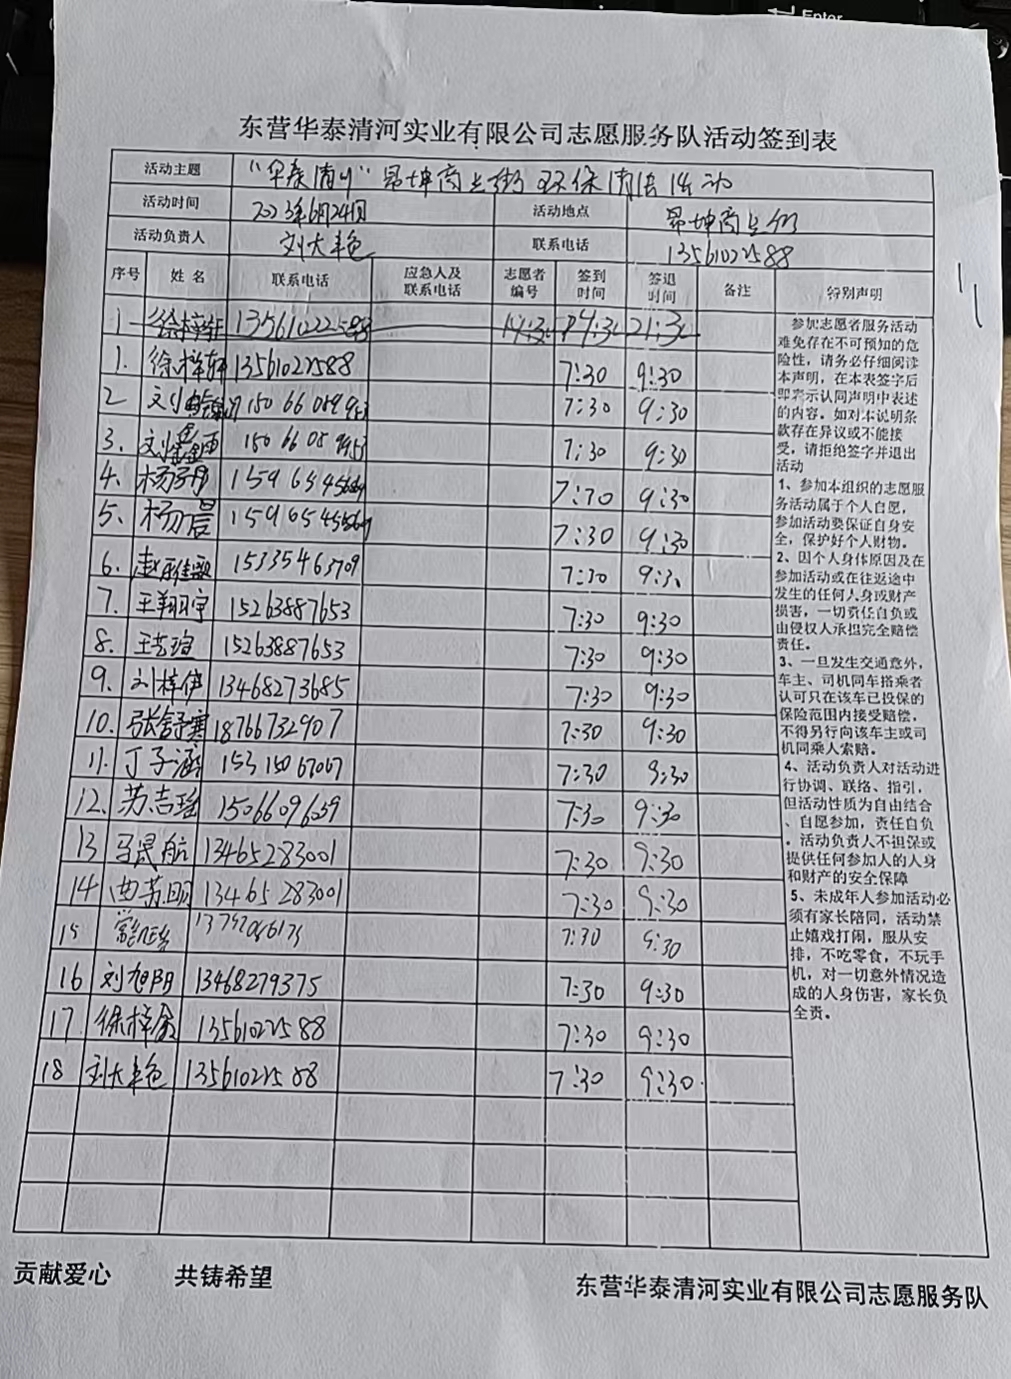 Enter
东营华泰清河实业有限公司志愿服务队活动签到表
活动主题 "华泰清河"昂坤商业街环保清洁活动
活动时间 2023年6月24日 活动地点 昂坤商业街
活动负责人 刘大艳 联系电话 13561022588
序号 姓名 联系电话 应急人及联系电话 志愿者编号 签到时间 签退时间 备注 特别声明
1 徐梓轩 13561022588
1. 徐梓轩 13561022588 7:30 9:30
2 7:30 9:30
3. 7:30 9:30
4. 7:30 9:30
5. 杨晨 7:30 9:30
6. 15335463709 7:30 9:30
7. 王翔宇 15263887653 7:30 9:30
8. 15263887653 7:30 9:30
9. 刘梓伊 13468273685 7:30 9:30
10. 张舒寒 18766732907 7:30 9:30
11. 丁子涵 15315067067 7:30 9:30
12. 苏吉瑶 1506609659 7:30 9:30
13 马晟航 13465283001 7:30 9:30
14 曲苏明 13465283001 7:30 9:30
15 7:30 9:30
16 刘旭阳 13468279375 7:30 9:30
17. 徐梓鑫 13561022588 7:30 9:30
18 13561022588 7:30 9:30
参加志愿者服务活动
难免存在不可预知的危
险性，请务必仔细阅读
本声明，在本表签字后
即表示认同声明中表述
的内容。如对本说明条
款存在异议或不能接
受，请拒绝签字并退出
活动
1、参加本组织的志愿服
务活动属于个人自愿，
参加活动要保证自身安
全，保护好个人财物。
2、因个人身体原因及在
参加活动或在往返途中
发生的任何人身或财产
损害，一切责任自负或
由侵权人承担完全赔偿
责任。
3、一旦发生交通意外，
车主、司机同车搭乘者
认可只在该车已投保的
保险范围内接受赔偿，
不得另行向该车主或司
机同乘人索赔。
4、活动负责人对活动进
行协调、联络、指引，
但活动性质为自由结合
、自愿参加，责任自负
。活动负责人不担保或
提供任何参加人的人身
和财产的安全保障
5、未成年人参加活动必
须有家长陪同，活动禁
止嬉戏打闹，服从安
排，不吃零食，不玩手
机，对一切意外情况造
成的人身伤害，家长负
全责。
贡献爱心 共铸希望 东营华泰清河实业有限公司志愿服务队